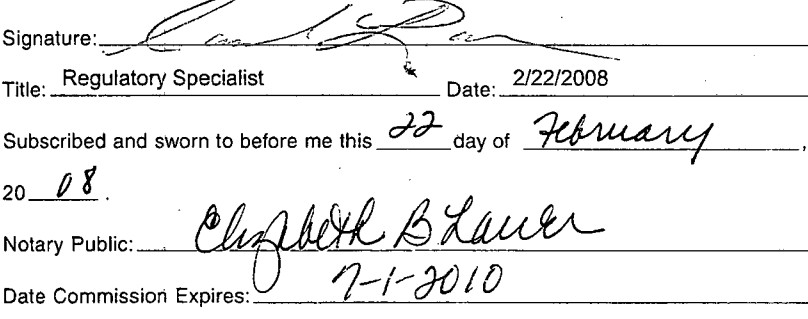 Signature:
Title: Regulatory Specialist Date: 2/22/2008
Subscribed and sworn to before me this 22 day of February,
20 08.
Notary Public: Elizabeth B Lauer
Date Commission Expires: 7-1-2010